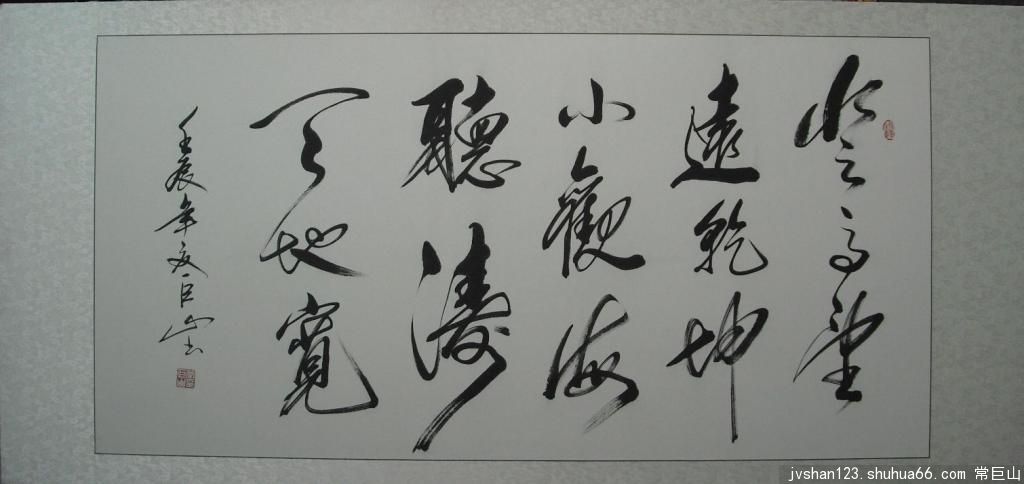 登高望
遠乾坤
小觀海
聽濤
天地寬
壬辰年夏巨山書
jvshan123.shuhua66.com 常巨山